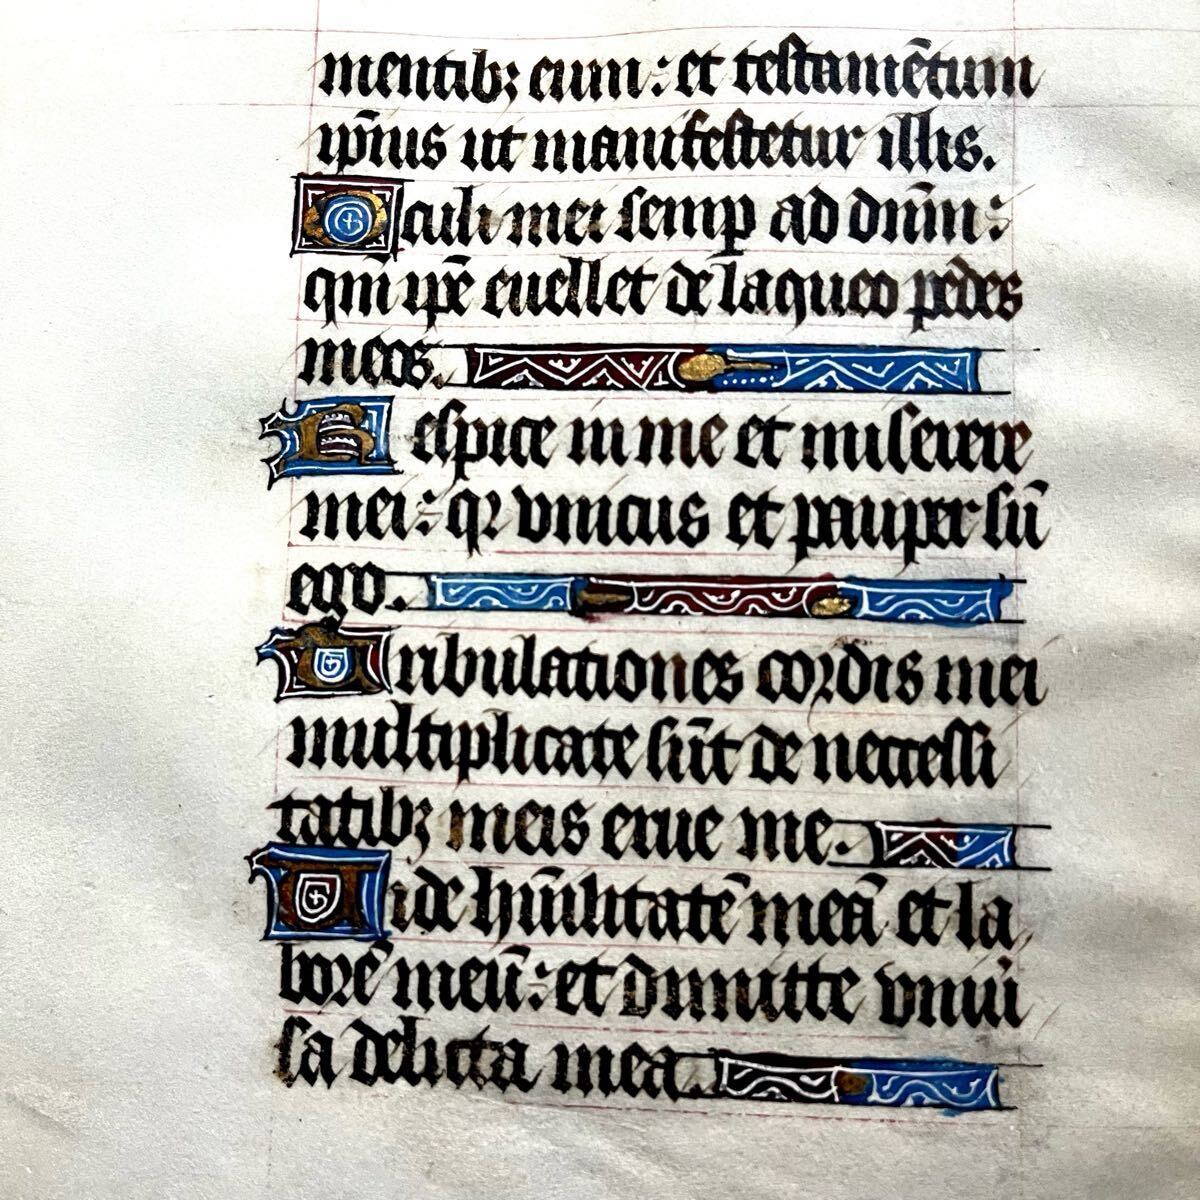 mentibꝫ eum: et testamētum
ip̄ius ut manifestetur illis.
Oculi mei semp ad dn̄m:
qm̄ ip̄e euellet de laqueo pedes
meos.
Respice in me et miserere
mei: qꝛ vnicus et pauper sū
ego.
Tribulationes coꝛdis mei
multiplicate sūt de neccessi
tatibꝫ meis erue me.
Vide hūilitatē meā et la
boꝛē meū: et dimitte vniū
sa delicta mea.